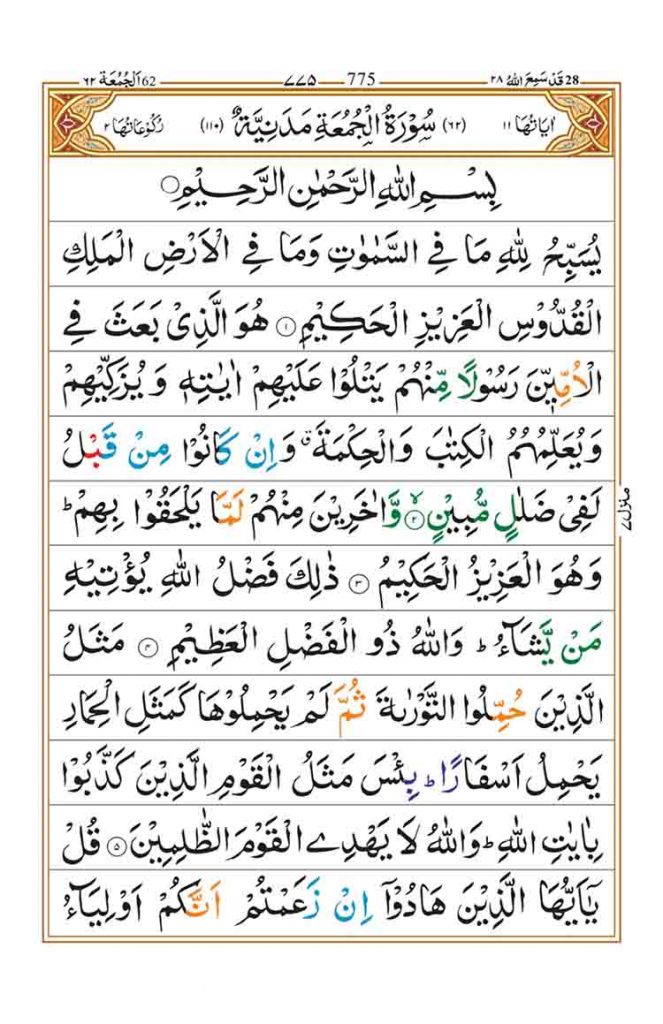 28 قَدْ سَمِعَ اللهُ ٢٨ 775 ٧٧٥ 62 اَلْجُمُعَة ٦٢
اٰيَاتُهَا ١١ (٦٢) سُوْرَةُ الْجُمُعَةِ مَدَنِيَّةٌ (١١٠) رُكُوْعَاتُهَا ٢
بِسْمِ اللهِ الرَّحْمٰنِ الرَّحِيْمِ○
يُسَبِّحُ لِلّٰهِ مَا فِي السَّمٰوٰتِ وَمَا فِي الْاَرْضِ الْمَلِكِ
الْقُدُّوْسِ الْعَزِيْزِ الْحَكِيْمِ ١ هُوَ الَّذِيْ بَعَثَ فِي
الْاُمِّيّٖنَ رَسُوْلًا مِّنْهُمْ يَتْلُوْا عَلَيْهِمْ اٰيٰتِهٖ وَيُزَكِّيْهِمْ
وَيُعَلِّمُهُمُ الْكِتٰبَ وَالْحِكْمَةَ ۗ وَاِنْ كَانُوْا مِنْ قَبْلُ
لَفِيْ ضَلٰلٍ مُّبِيْنٍ ٢ۙ وَّاٰخَرِيْنَ مِنْهُمْ لَمَّا يَلْحَقُوْا بِهِمْ ؕ
وَهُوَ الْعَزِيْزُ الْحَكِيْمُ ٣ ذٰلِكَ فَضْلُ اللهِ يُؤْتِيْهِ
مَنْ يَّشَآءُ ؕ وَاللهُ ذُو الْفَضْلِ الْعَظِيْمِ ٤ مَثَلُ
الَّذِيْنَ حُمِّلُوا التَّوْرٰىةَ ثُمَّ لَمْ يَحْمِلُوْهَا كَمَثَلِ الْحِمَارِ
يَحْمِلُ اَسْفَارًا ؕ بِئْسَ مَثَلُ الْقَوْمِ الَّذِيْنَ كَذَّبُوْا
بِاٰيٰتِ اللهِ ؕ وَاللهُ لَا يَهْدِي الْقَوْمَ الظّٰلِمِيْنَ ٥ قُلْ
يٰۤاَيُّهَا الَّذِيْنَ هَادُوْۤا اِنْ زَعَمْتُمْ اَنَّكُمْ اَوْلِيَآءُ
منزل ٧